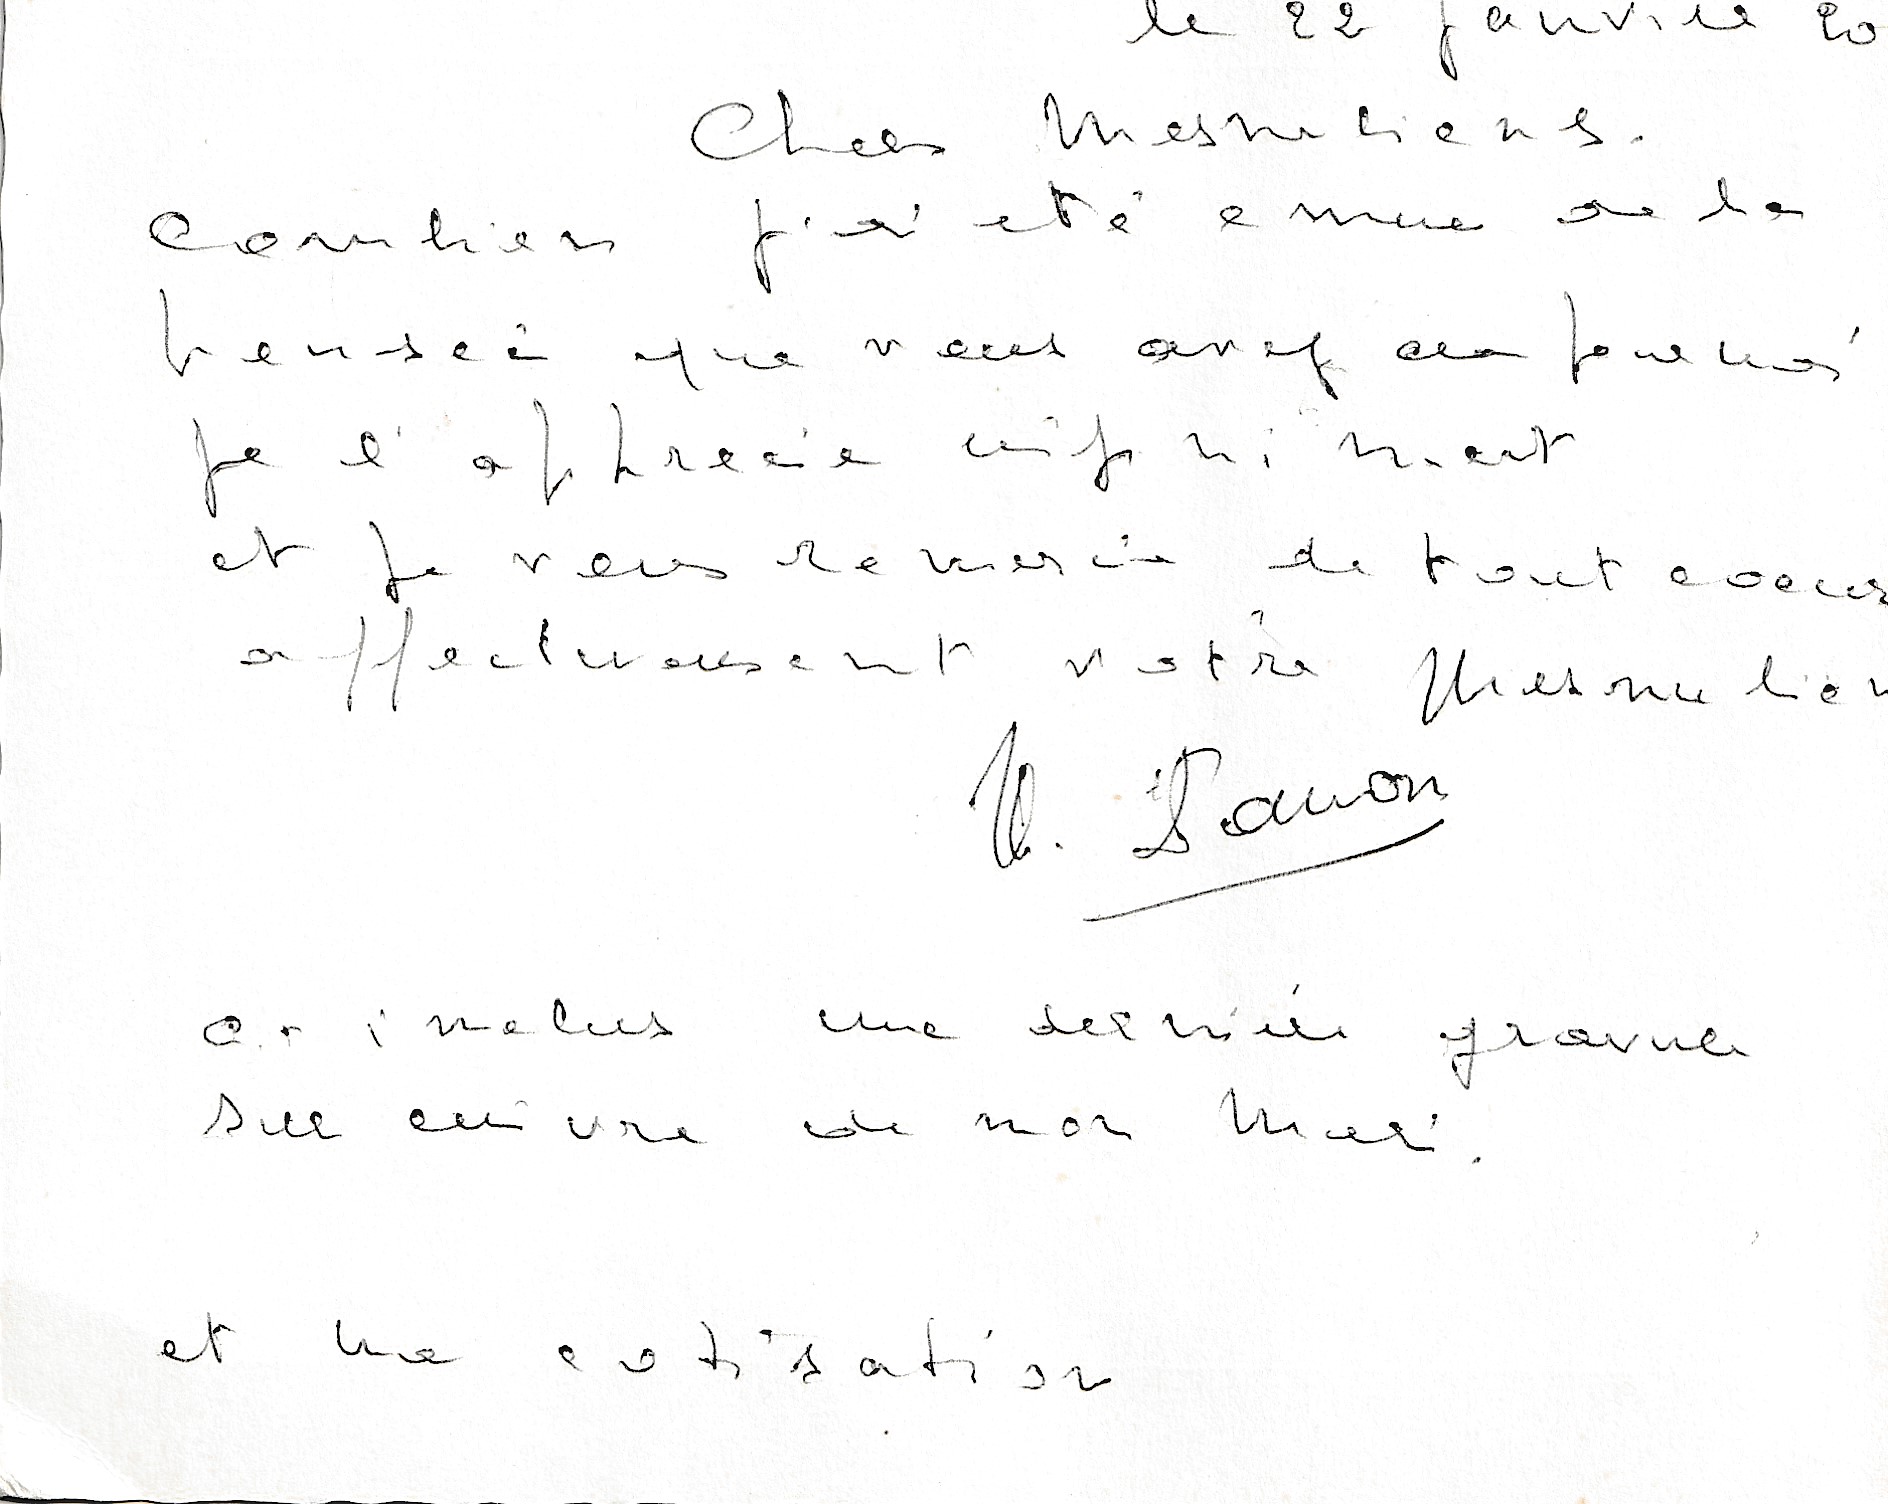 le 22 janvier 20
Chers Mesnuliens.
Combien j'ai été emue de la
pensée que vous avez eu pour moi
je l'apprecie infiniment
et je vous remercie de tout coeur
affectueusement votre Mesnulien
ci inclus une dernière gravure
sur cuivre de mon Mari.
et ma cotisation